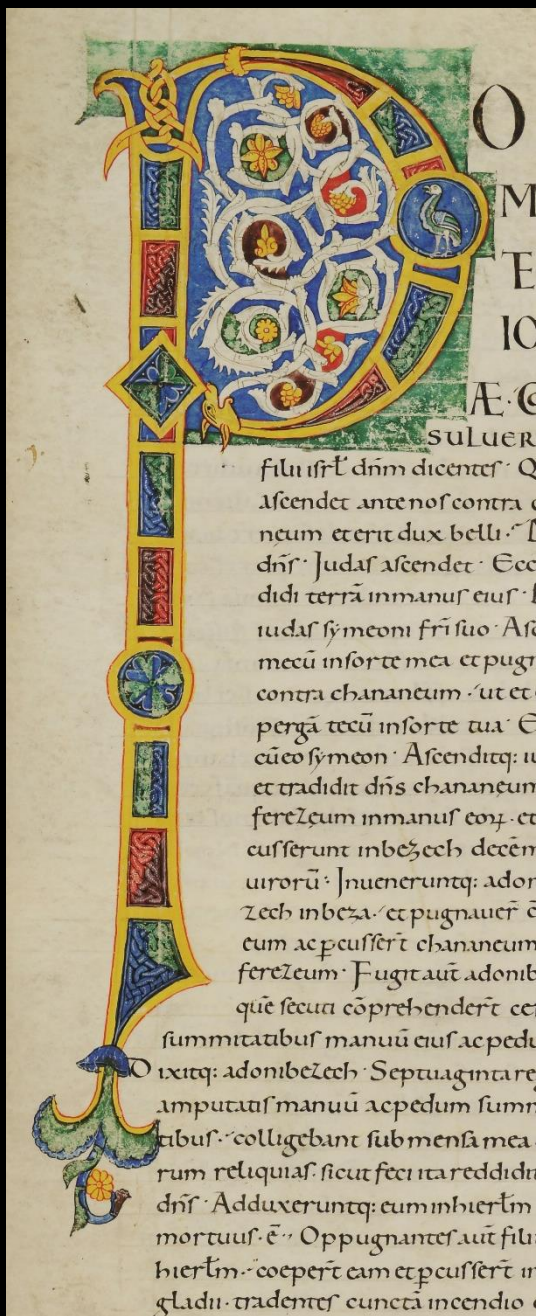 PO
M
TE
IO
Æ · CO
SULUER
filii isrł dn̄m dicentes · Q
ascendet ante nos contra c
nęum et erit dux belli ·
dn̄s · Judas ascendet · Ecc
didi terrā in manus eius ·
iudas symeoni fr̄i suo · Asc
mecū in sorte mea et pugn
contra chananeum · ut et e
pergā tecū in sorte tua · E
cū eo symeon · Ascenditq: iu
et tradidit dn̄s chananęum
ferezęum in manus eoꝝ · et
cusserunt in bezech decēm
uirorū · Jnueneruntq: adon
zech in beza · et pugnauer̄ c̄
eum ac ꝑcusser̄t chananeum
ferezeum · Fugit aūt adonib
quē secuti cōprehender̄t ce
summitatibus manuū eius ac pedu
Dixitq: adonibezech · Septuaginta re
amputatis manuū ac pedum summ
tibus · colligebant sub mensa mea
rum reliquias · sicut feci ita reddidit
dn̄s · Adduxeruntq: eum in hierłm
mortuus · ē · Oppugnantes aūt filii
hierłm · coeper̄t eam et ꝑcusser̄t in
gladii · tradentes cuncta incendio c